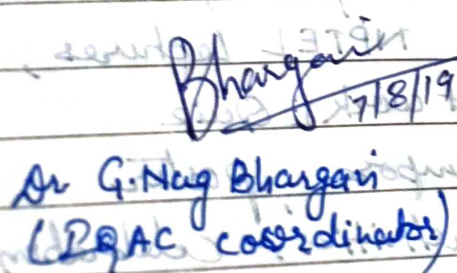 Bhargavi
7/8/19
Dr G.Nag Bhargavi
(IQAC coordinator)